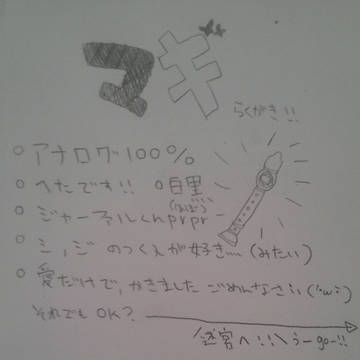 マギ
らくがき!!
○ アナログ100%
○ へたです!! ○白黒
○ ジャーファルくんprpr
(ほぼ)
○ シンジのつくえが好き…(みたい)
○ 愛だけで、かきました ごめんなさい(^w^;)
それでもOK?
迷宮へ!!＼うーgo-!!